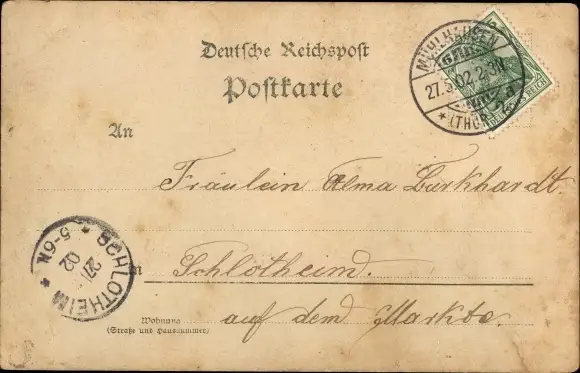 Deutsche Reichspost
Postkarte
MÜHLHAUSEN
27.5.02.2-3N
* (THÜR
An
Fräulein Alma Burkhardt.
SCHLOTHEIM *
27
02
5-6N. *
in
Schlotheim.
Wohnung
(Straße und Hausnummer)
auf dem Markte.